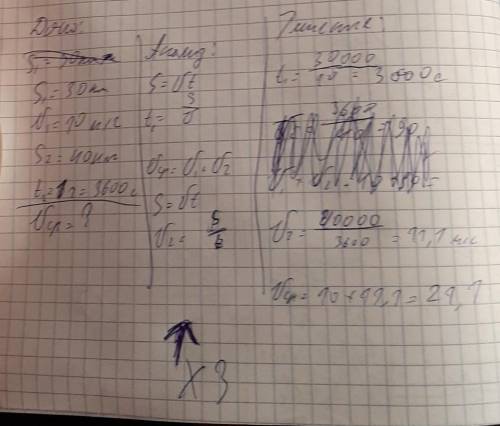 Дано:
S₁ = 30км
V₁ = 10 м/с
S₂ = 40км
t₂ = 1ч = 3600с
Vср = ?
Анализ:
S = Vt
t₁ = S/V
Vср = V₁ + V₂
S = Vt
V₂ = S/t
Решение:
t₁ = 30000/10 = 3000с
V₂ = 40000/3600 = 11,1 м/с
Vср = 10 + 11,1 = 21,1
X3